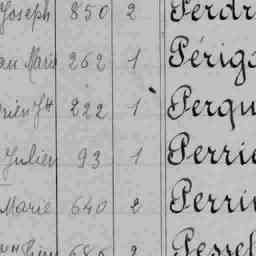 Joseph 850 2 Perdr
an Marie 262 1 Périgo
rien Jh 222 1 Pergu
Julien 93 1 Perrie
Marie 640 2 Perrin
685 2 Pessel